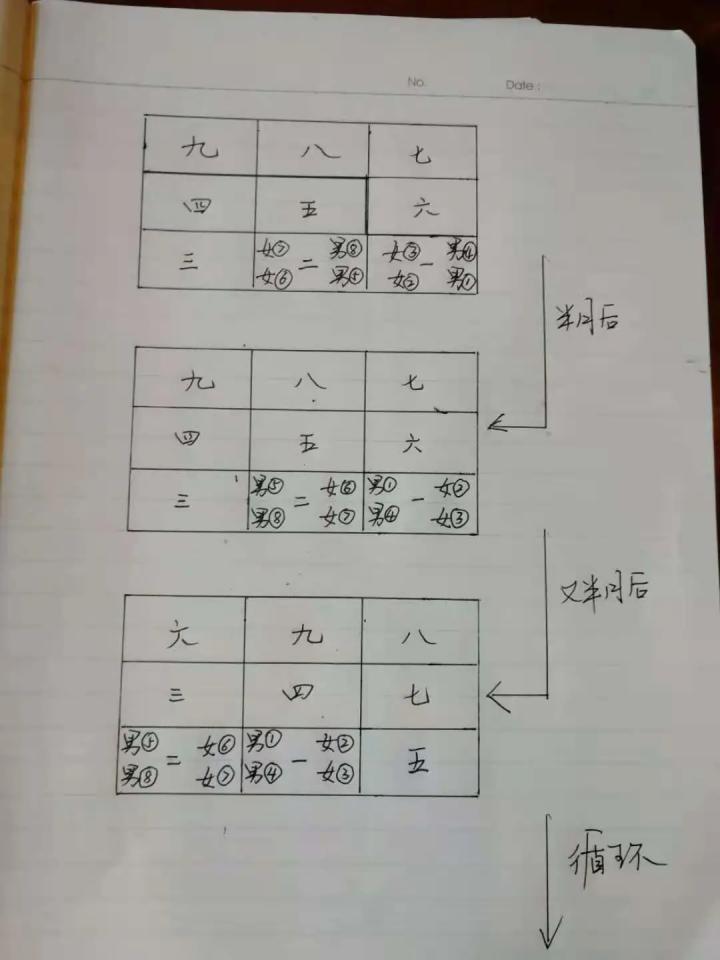 No. Date:
九 八 七
四 五 六
三 女⑦ 女⑥ 二 男⑧ 男⑤ 女③ 女② 一 男④ 男①
半月后
九 八 七
四 五 六
三 男⑤ 男⑧ 二 女⑥ 女⑦ 男① 男④ 一 女② 女③
又半月后
六 九 八
三 四 七
男⑤ 男⑧ 二 女⑥ 女⑦ 男① 男④ 一 女② 女③ 五
循环